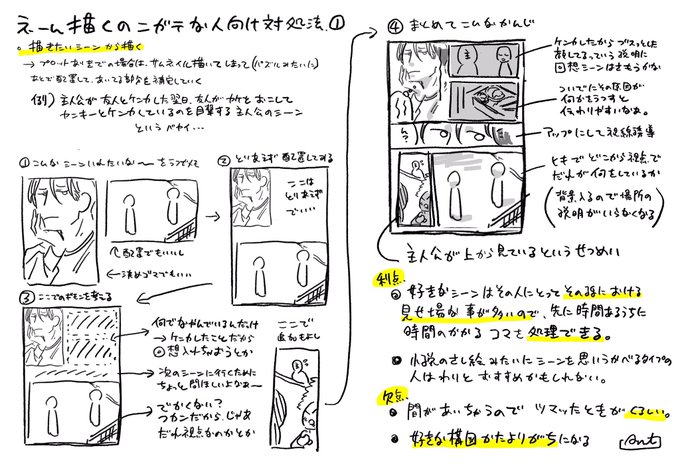 ネーム描くのニガテな人向け対処法.①
。描きたいシーンから描く
→ プロットありきでの場合は、サムネイル描いてしまって(パズルみたいに)
あとで配置して、あいてる部分を補完していく
例) 主人公が友人とケンカした翌日、友人が
ヤンキーとケンカしているのを目撃する主人公のシーン
というベタイ…
①こんなシーンいれたいな〜をうつす
②とりあえず配置してみる
ここは
とりあえず
でいい
↑配置でもいいし
← 決めゴマでもいい
③ここでのギモンを考える
何でなやんでいるんだっけ
→ケンカしたことだから
回想入れちゃおうとか
次のシーンに行くために
ちょっと間ほしいよなぁ〜
でかくない?
フカンだから、じゃあ
だれ視点なのかとか
ここで
追加もよし
④ まとめてこんなかんじ
ケンカしたからブスッとした
顔してるっていう説明に
回想シーンはさもうかな
ついでにその原因が
何かもうつすと
伝わりやすいなぁ。
アップにして視線誘導
ヒキでどこから視点で
だれが何をしているか
(背景入るので場所の
説明がいらなくなる)
主人公が上から見ているというせつめい
利点
◎ 好きなシーンはその人にとってその話における
見せ場な事が多いので、先に時間あるうちに
時間のかかるコマを処理できる。
◎ 小説のさし絵みたいにシーンを思いうかべるタイプの
人はわりとおすすめかもしれない。
欠点
● 間があいちゃうのでツマッたときがくるしい。
● 好きな構図かたよりがちになる